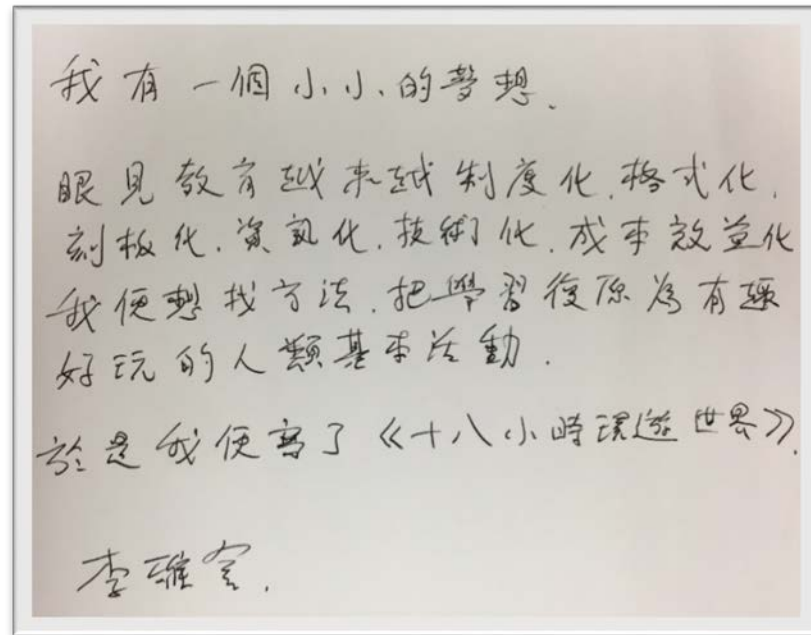 我有一個小小的夢想.
眼見教育越來越制度化.格式化.
刻板化.資訊化.技術化.成本效益化
我便想找方法.把學習復原為有趣
好玩的人類基本活動.
於是我便寫了《十八小時環遊世界》.
李雅言.